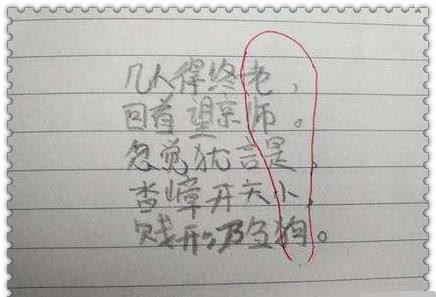 几人得终老，
回首望京师。
忽觉犹言是，
沓嶂开天小，
贱形乃刍狗。